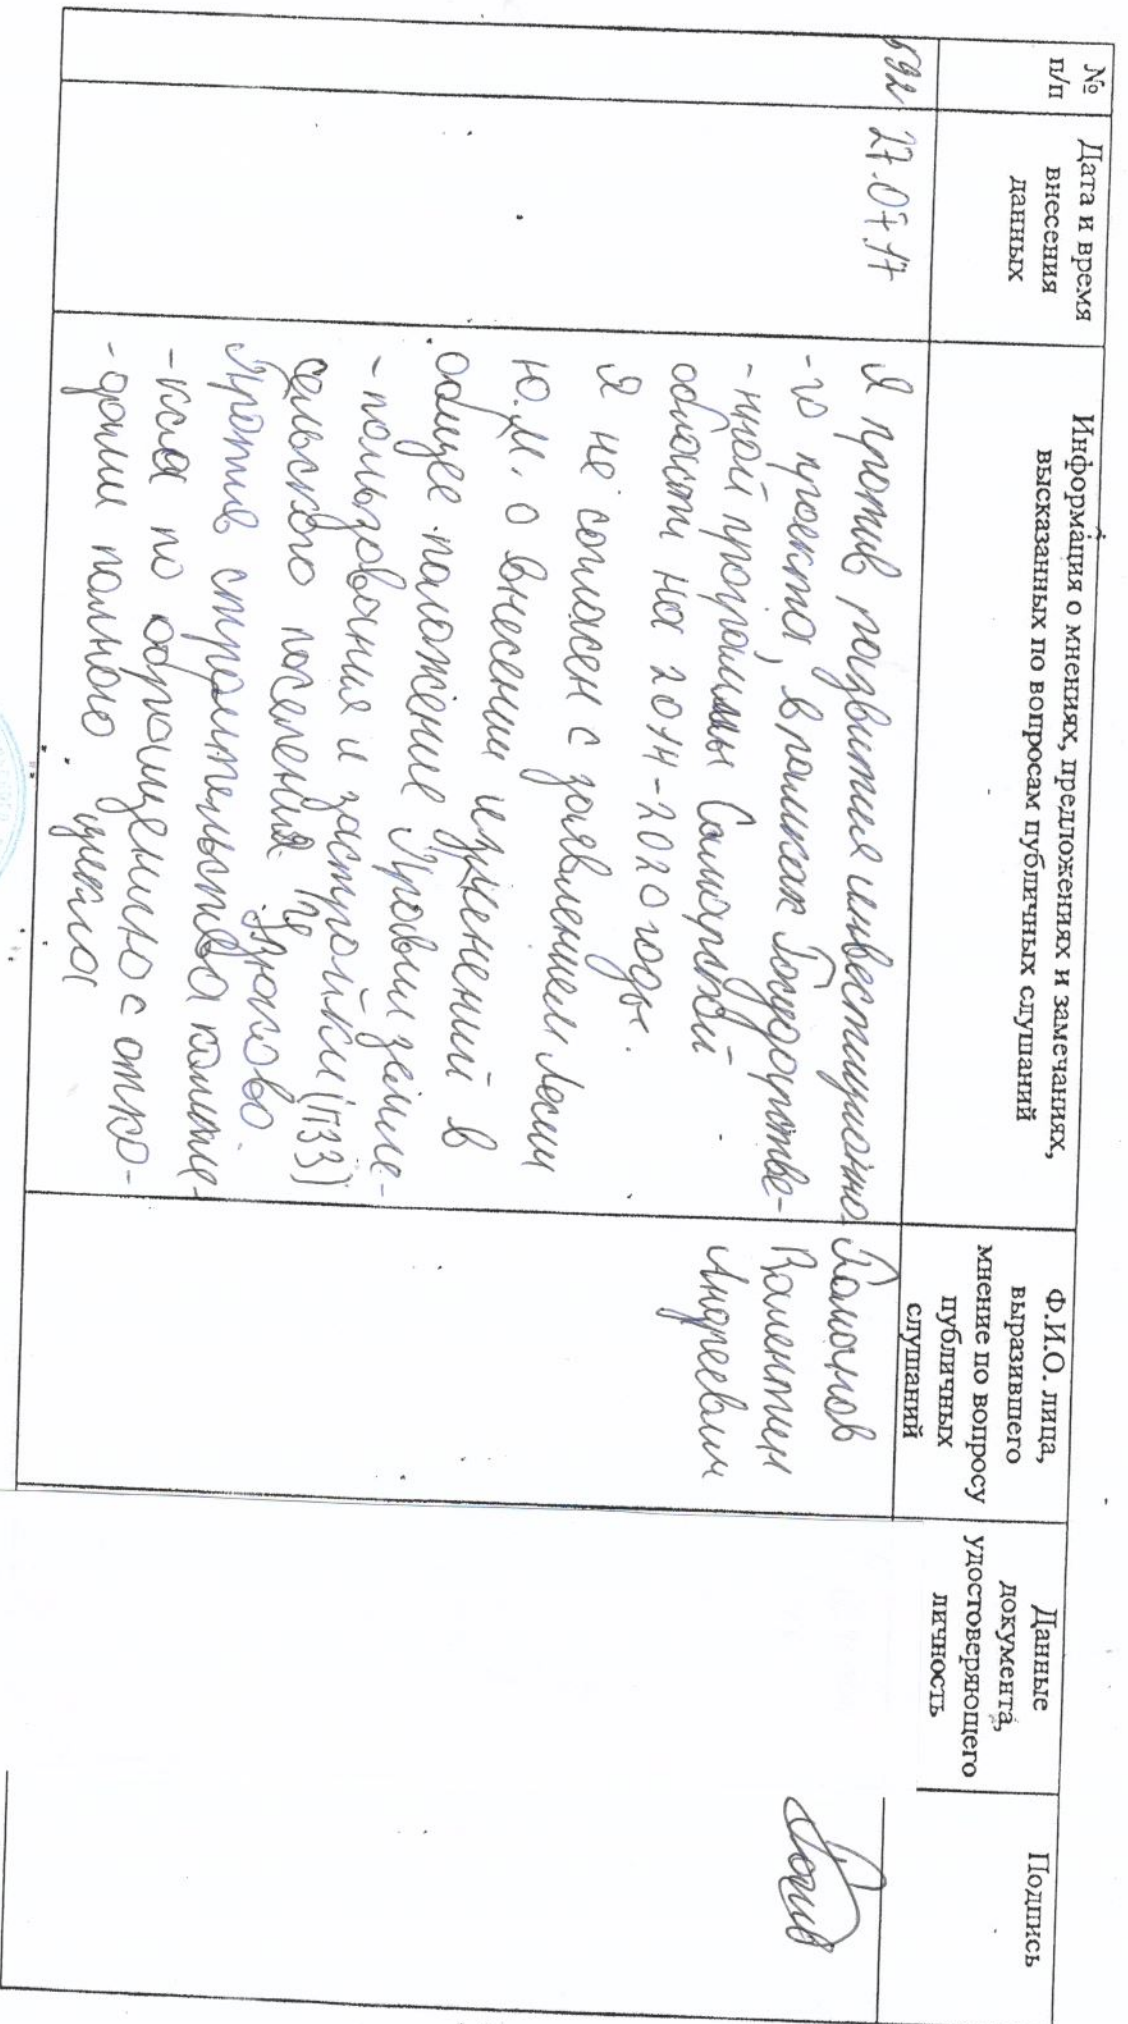 №
п/п
Дата и время
внесения
данных
Информация о мнениях, предложениях и замечаниях,
высказанных по вопросам публичных слушаний
Ф.И.О. лица,
выразившего
мнение по вопросу
публичных
слушаний
Данные
документа,
удостоверяющего
личность
Подпись
592
27.07.17
Я против развития инвестиционно-
-го проекта, в рамках Государстве-
-нной программы Самарской
области на 2014-2020 годы.
Я не согласен с заявлением Лесин
Ю.М. о внесении изменений в
общее положение Правил земле-
-пользования и застройки (ПЗЗ)
сельского поселения
Против строительства компле-
-кса по обращению с отхо-
-дами полного цикла
Валентин
Андреевич